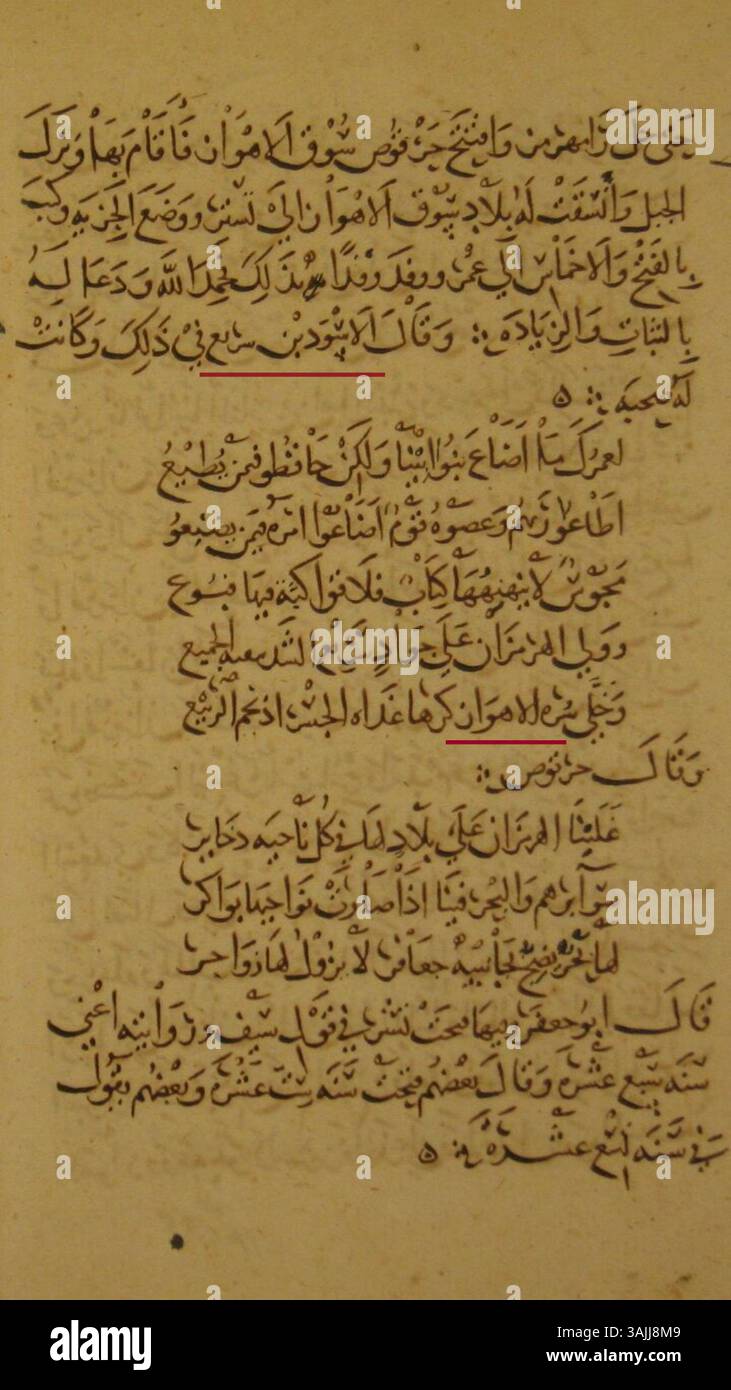 حتى حل رامهرمز وافتتح حرقوص سوق الاهواز فاقام بها ونزل
الجبل واتسقت له بلاد سوق الاهواز الى تستر ووضع الجزيه وكتب
بالفتح والاخماس الى عمر ووفد وفدا بذلك فحمد الله ودعا له
بالثبات والزياده وقال الاسود بن سريع في ذلك وكانت
له صحبه
لعمرك ما اضاع بنو ابينا ولكن حافظوا فيمن يطيع
اطاعوا ربهم وعصوه قوم اضاعوا امره فيمن يضيعو
مجوس لا ينهنهها كتاب فلاقوا كبة فيها قبوع
وولى الهرمزان على جواد سريع الشد الجميع
وخلى سره الاهواز كرها غداه الجسر اذ نجم الربيع
وقال حرقوص
غلبنا الهرمزان على بلاد لها في كل ناحيه ذخاير
سوا برهم والبحر فيها اذا صارت نواجبها بواكر
لها بحر يعج بجانبيه جعافر لا يزول لها زواجر
قال ابو جعفر فيها فتحت تستر في قول سيف وروايته اعني
سنه سبع عشره وقال بعضهم فتحت سنه ست عشره وبعضهم يقول
في سنه تسع عشره
alamy
Image ID: 3AJJ8M9
www.alamy.com